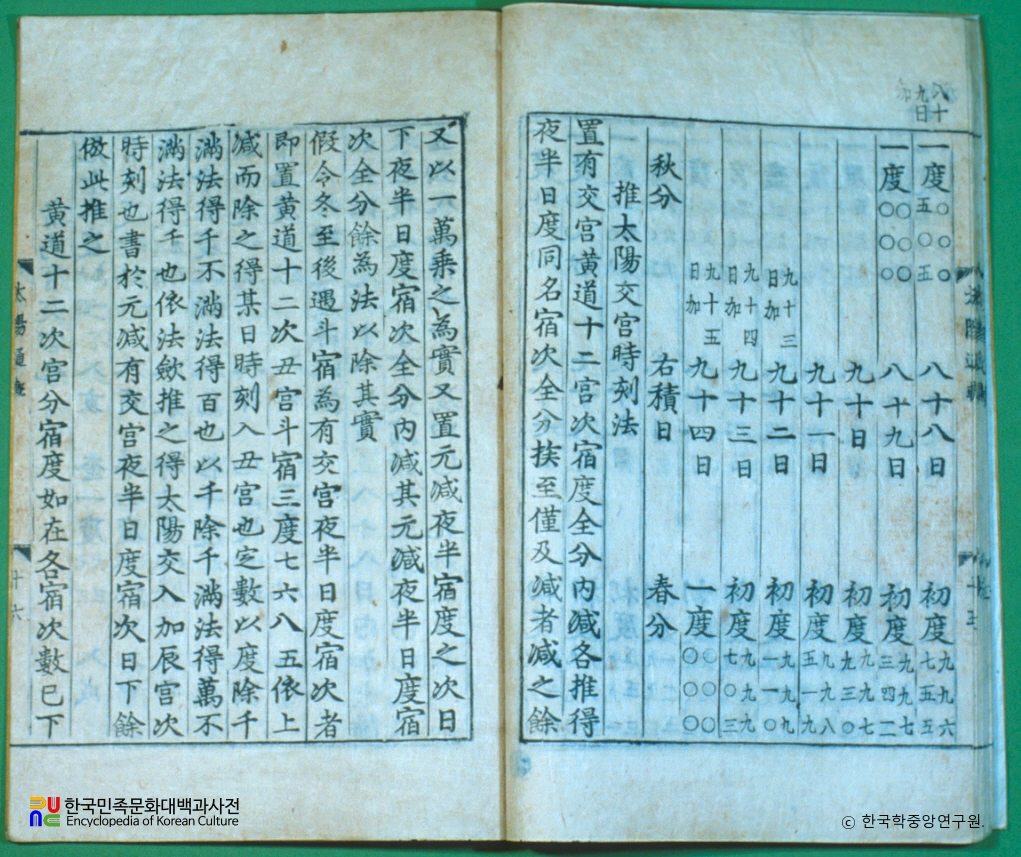 一度○○○五○五 八十八日 初度九九六七五五
一度○○○○○○ 八十九日 初度九九七三四二
九十日 初度九九七九三○
九十一日 初度九九八五一九
九十三日加 九十二日 初度九九九一一○
九十四日加 九十三日 初度九九九七○三
九十五日加 九十四日 一度○○○○○○
秋分 右積日 春分
推太陽交宮時刻法
置有交宮黃道十二宮次宿度全分內減各推得
夜半日度同名宿次全分挨至僅及減者減之餘
又以一萬乘之為實又置元減夜半宿度之次日
下夜半日度宿次全分內減其元減夜半日度宿
次全分餘為法以除其實
假令冬至後遇斗宿為有交宮夜半日度宿次者
即置黃道十二次丑宮斗宿三度七六八五依上
減而除之得某日時刻入丑宮也定數以度除千
滿法得千不滿法得百也以千除千滿法得萬不
滿法得千也依法斂推之得太陽交入加辰宮次
時刻也書於元減有交宮夜半日度宿次日下餘
倣此推之
黃道十二次宮分宿度如在各宿次數已下
太陽通軌
十六
한국민족문화대백과사전
Encyclopedia of Korean Culture
ⓒ 한국학중앙연구원.